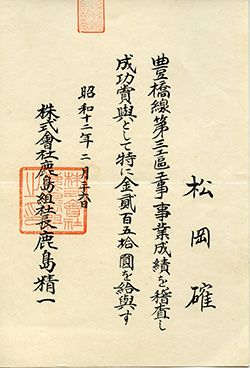 松岡確
豊橋線第三工區工事事業成績を稽査し
成功賞與として特に金貳百五拾圓を給與す
昭和十二年二月二十六日
株式會社鹿島組社長鹿島精一